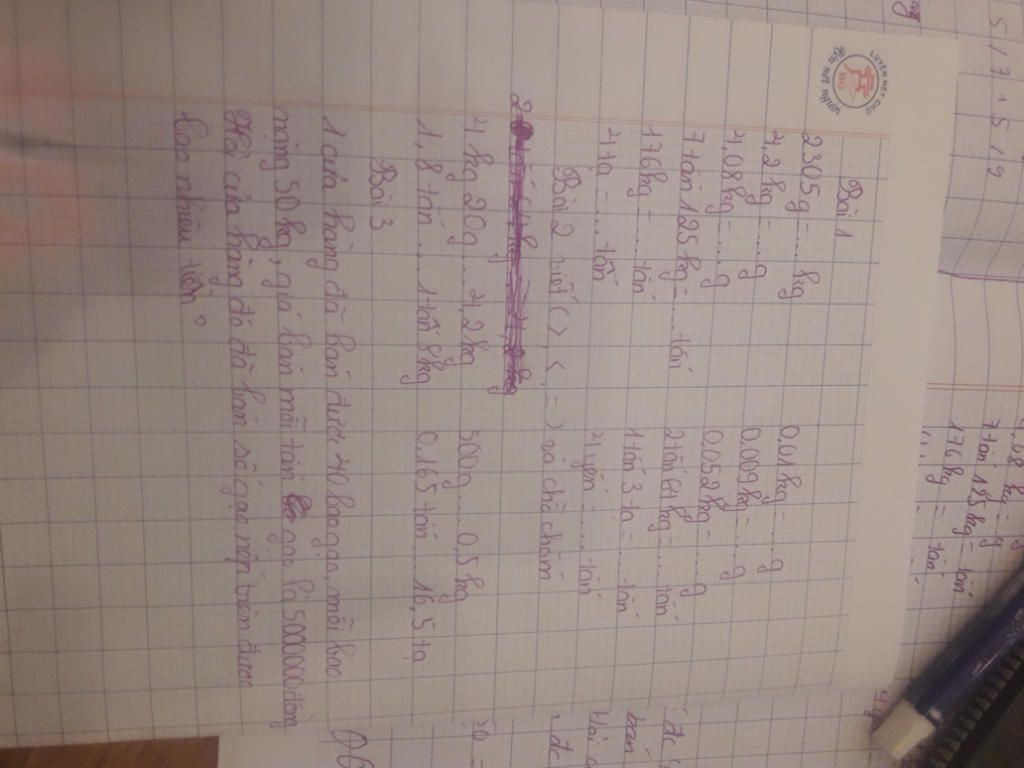 Bài 1
2305g = .... kg
0,01kg = ..... g
4,2kg = ..... g
0,009kg = ..... g
4,08kg = ..... g
0,052kg = ..... g
7 tấn 125 kg = ..... tấn
2 tấn 64 kg = ..... tấn
176kg = .... tấn
1 tấn 3 tạ = ..... tấn
4 tạ = .... tấn
4 yến = ..... tấn
Bài 2 (>, <, =) chỗ chấm
4 kg 20g .... 4,2kg
500g .... 0,5kg
1,8 tấn .... 1 tấn 8kg
0,165 tấn ... 16,5 tạ
Bài 3
1 cửa hàng đã bán được 40 bao gạo, mỗi bao
nặng 50 kg, giá bán mỗi tấn gạo là 5000000 đồng
Hỏi cửa hàng đó đã bán số gạo trên được
bao nhiêu tiền?
5 / 7 + 5 / 9
7 tấn 125 kg = tấn
176 kg = tấn